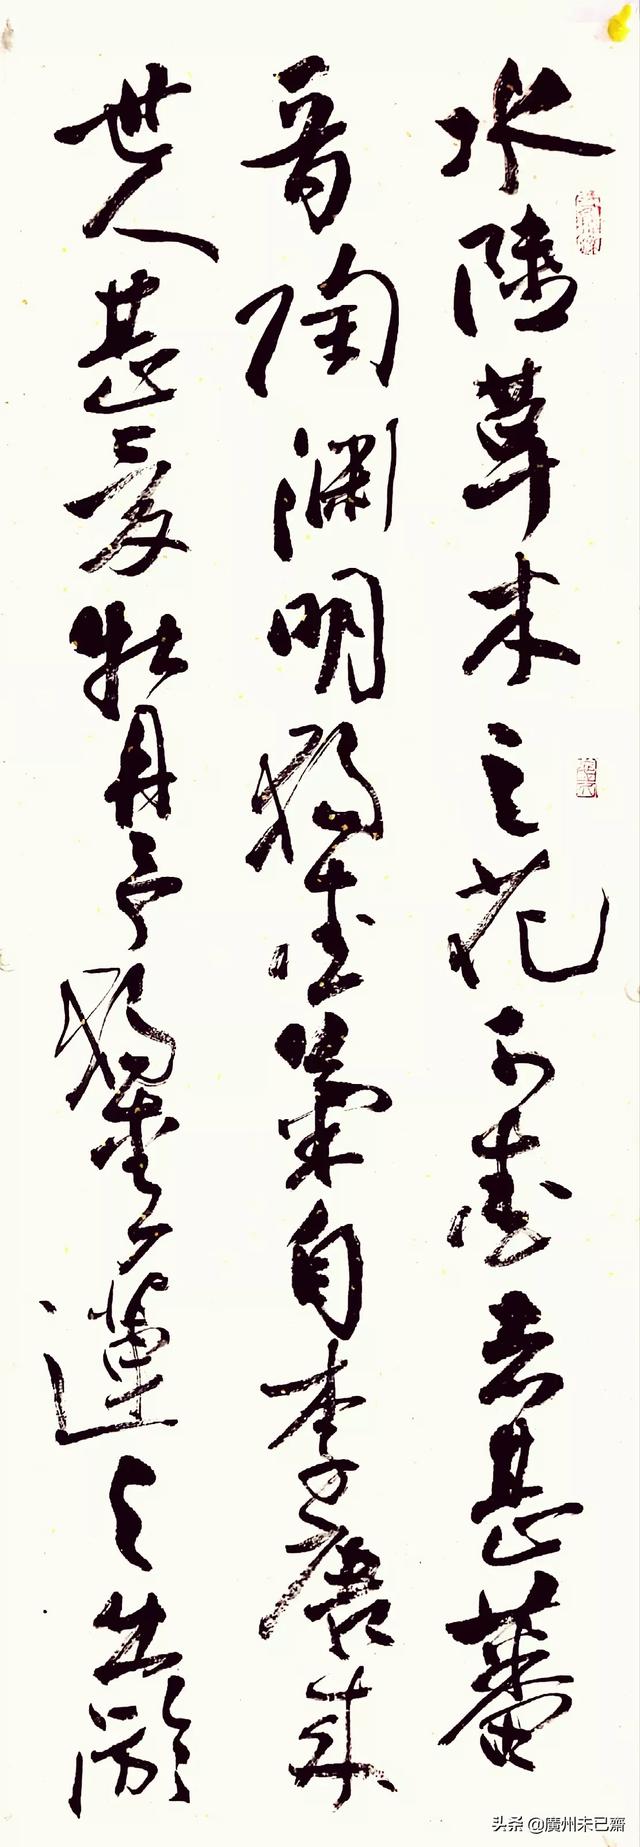 水陸草木之花可愛者甚蕃
晉陶淵明獨愛菊自李唐來
世人甚愛牡丹予獨愛蓮之出淤
头条 @廣州未已齋